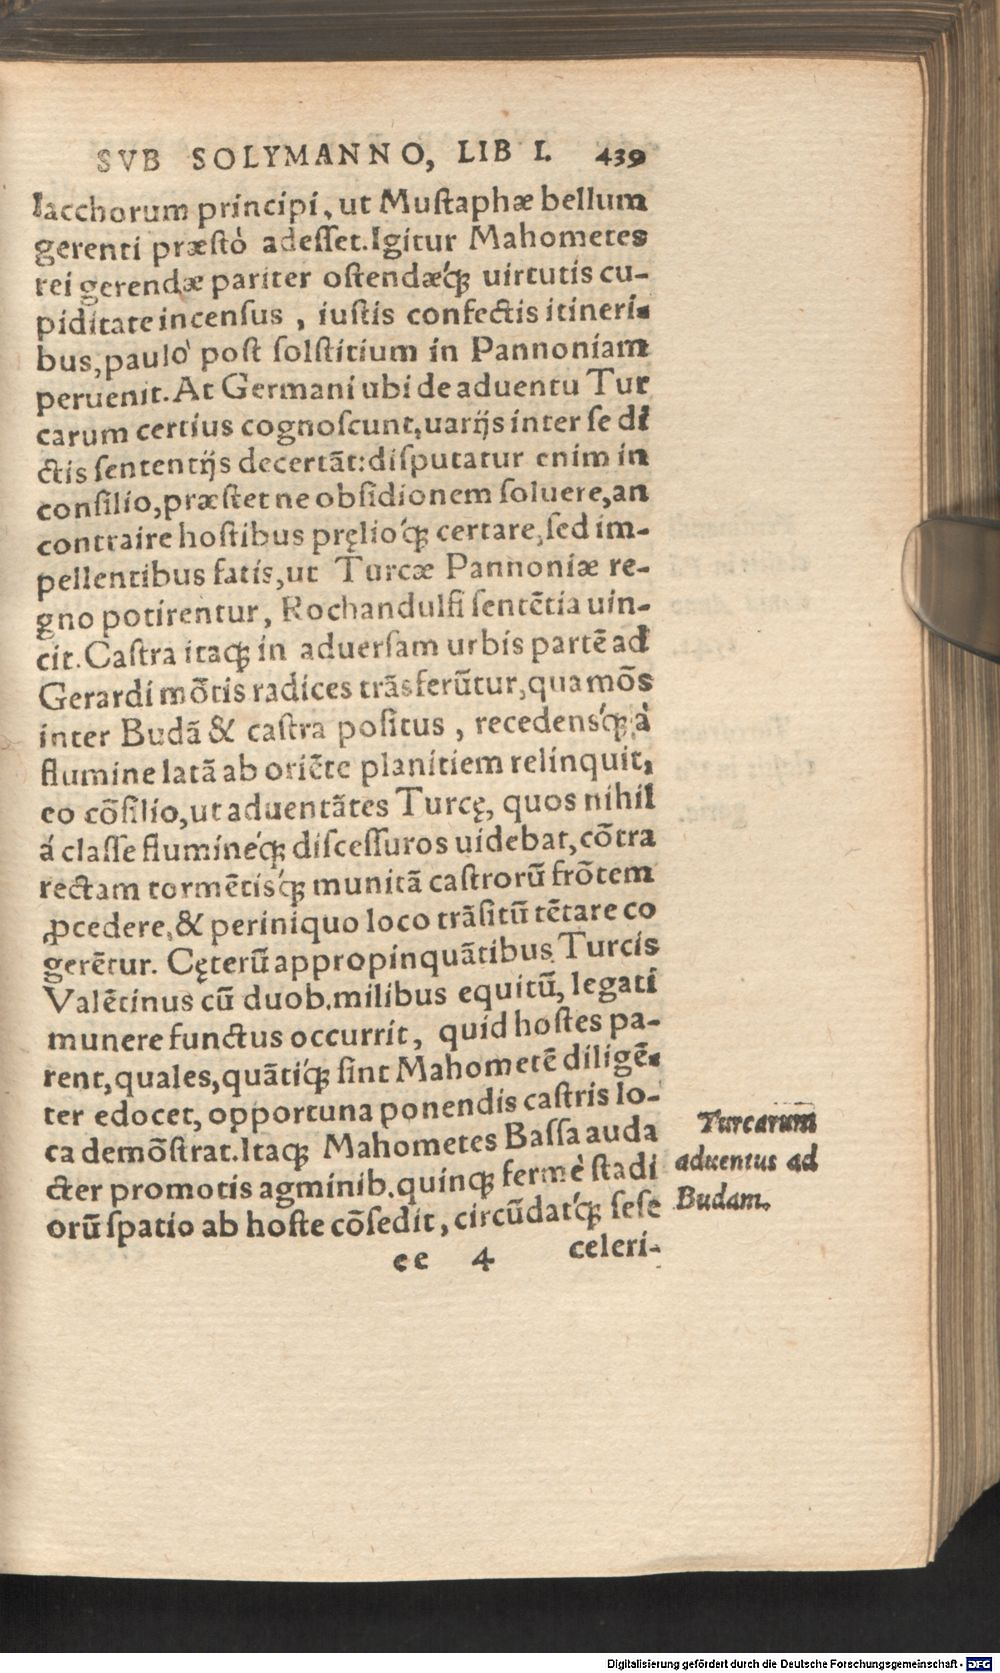 SVB SOLYMANNO, LIB I. 439
Iacchorum principi, ut Mustaphæ bellum
gerenti præstò adesset. Igitur Mahometes
rei gerendæ pariter ostendæq́ꝫ uirtutis cu-
piditate incensus, iustis confectis itineri-
bus, paulò post solstitium in Pannoniam
peruenit. At Germani ubi de aduentu Tur
carum certius cognoscunt, uarijs inter se di
ctis sententijs decertãt: disputatur enim in
consilio, præstet ne obsidionem soluere, an
contraire hostibus pręlioq́ꝫ certare, sed im-
pellentibus fatis, ut Turcæ Pannoniæ re-
gno potirentur, Rochandulfi sentẽtia uin-
cit. Castra itaqꝫ in aduersam urbis partẽ ad
Gerardi mõtis radices trãsferũtur, qua mõs
inter Budã & castra positus, recedensq́ꝫ à
flumine latã ab oriẽte planitiem relinquit,
eo cõsilio, ut aduentãtes Turcę, quos nihil
á classe flumineq́ꝫ discessuros uidebat, cõtra
rectam tormẽtisq́ꝫ munitã castrorũ frõtem
ꝓcedere, & per iniquo loco trãsitũ tẽtare co
gerẽtur. Cęterũ appropinquãtibus Turcis
Valẽtinus cũ duob. milibus equitũ, legati
munere functus occurrit, quid hostes pa-
rent, quales, quãtiq́ꝫ sint Mahometẽ diligẽ-
ter edocet, opportuna ponendis castris lo-
ca demõstrat. Itaqꝫ Mahometes Bassa auda
cter promotis agminib. quinqꝫ fermè stadi
orũ spatio ab hoste cõsedit, circũdatq́ꝫ sese
ee 4 celeri-
Turcarum
aduentus ad
Budam.
Digitalisierung gefördert durch die Deutsche Forschungsgemeinschaft - DFG